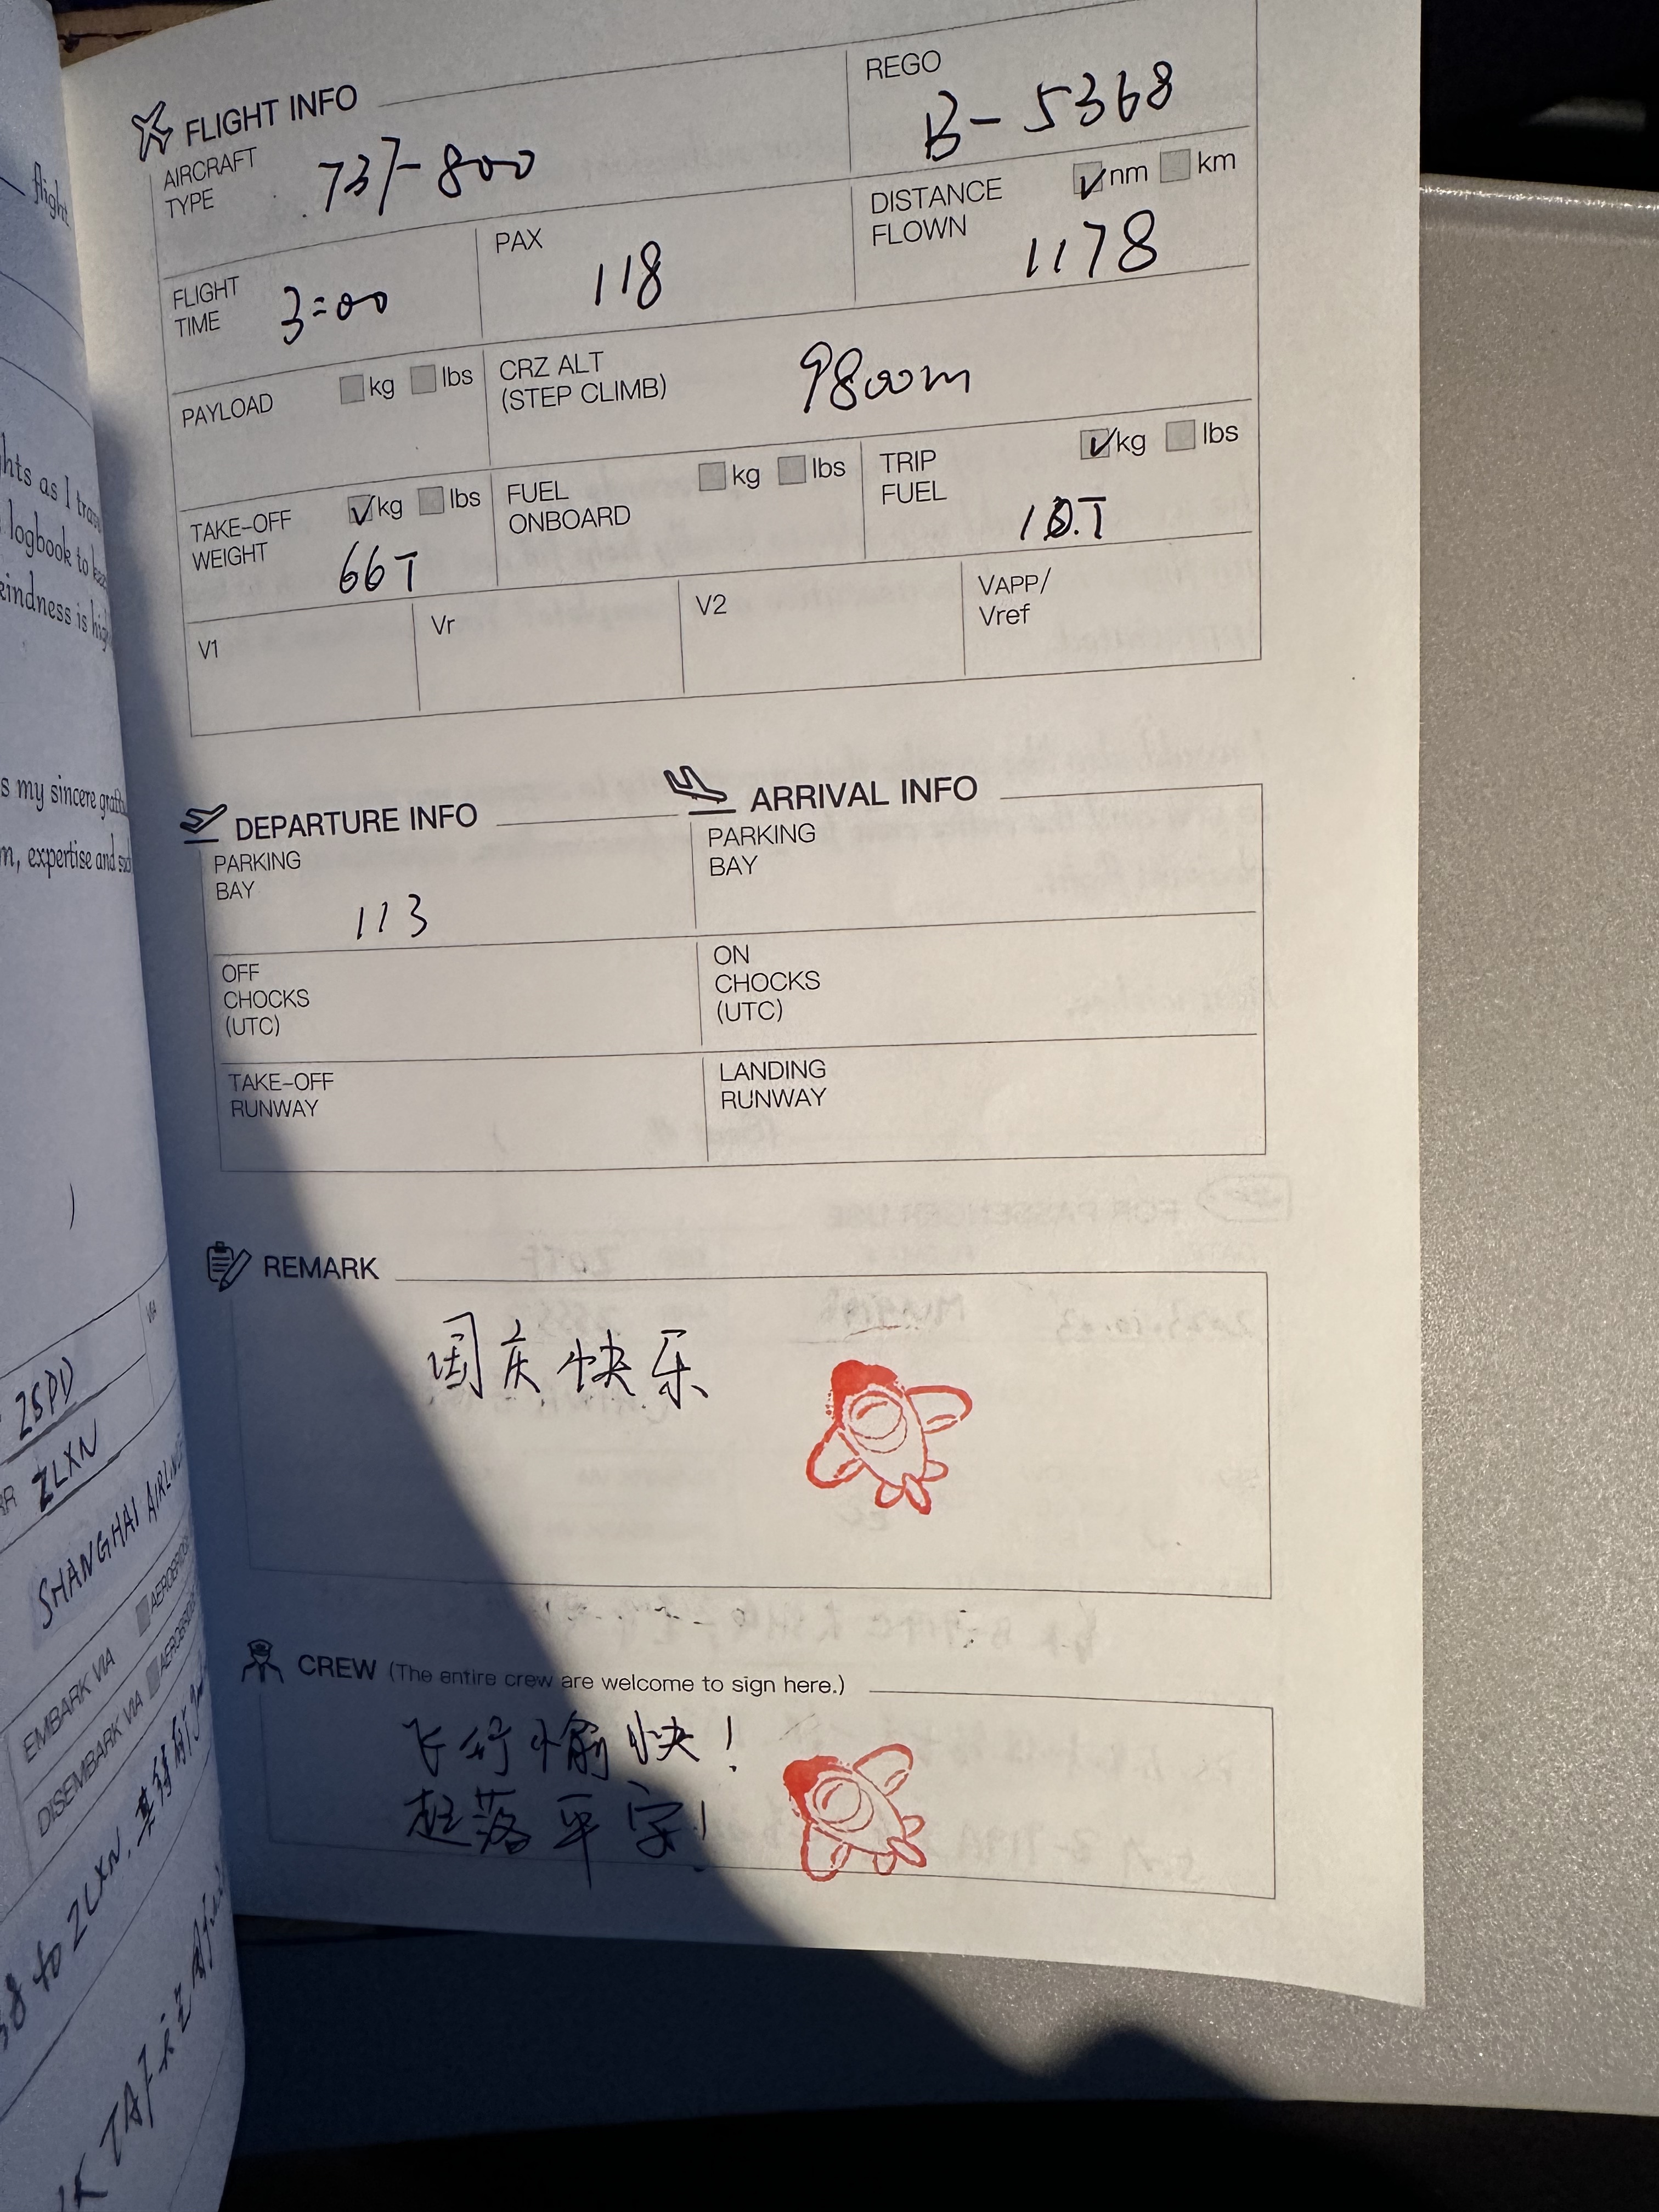 FLIGHT INFO
AIRCRAFT TYPE 737-800
REGO B-5368
FLIGHT TIME 3:00
PAX 118
DISTANCE FLOWN nm km 1178
PAYLOAD kg lbs
CRZ ALT (STEP CLIMB) 9800m
TAKE-OFF WEIGHT kg lbs 66T
FUEL ONBOARD kg lbs
TRIP FUEL kg lbs 10.T
V1
Vr
V2
VAPP/ Vref
DEPARTURE INFO
ARRIVAL INFO
PARKING BAY 113
PARKING BAY
OFF CHOCKS (UTC)
ON CHOCKS (UTC)
TAKE-OFF RUNWAY
LANDING RUNWAY
REMARK
国庆快乐
CREW (The entire crew are welcome to sign here.)
飞行愉快！
起落平安！
flight
as I
logbook to
kindness is
s my sincere
expertise and
ZSPD
VIA
ZLXN
SHANGHAI AIRLINES
EMBARK VIA
DISEMBARK VIA
to ZLXN.